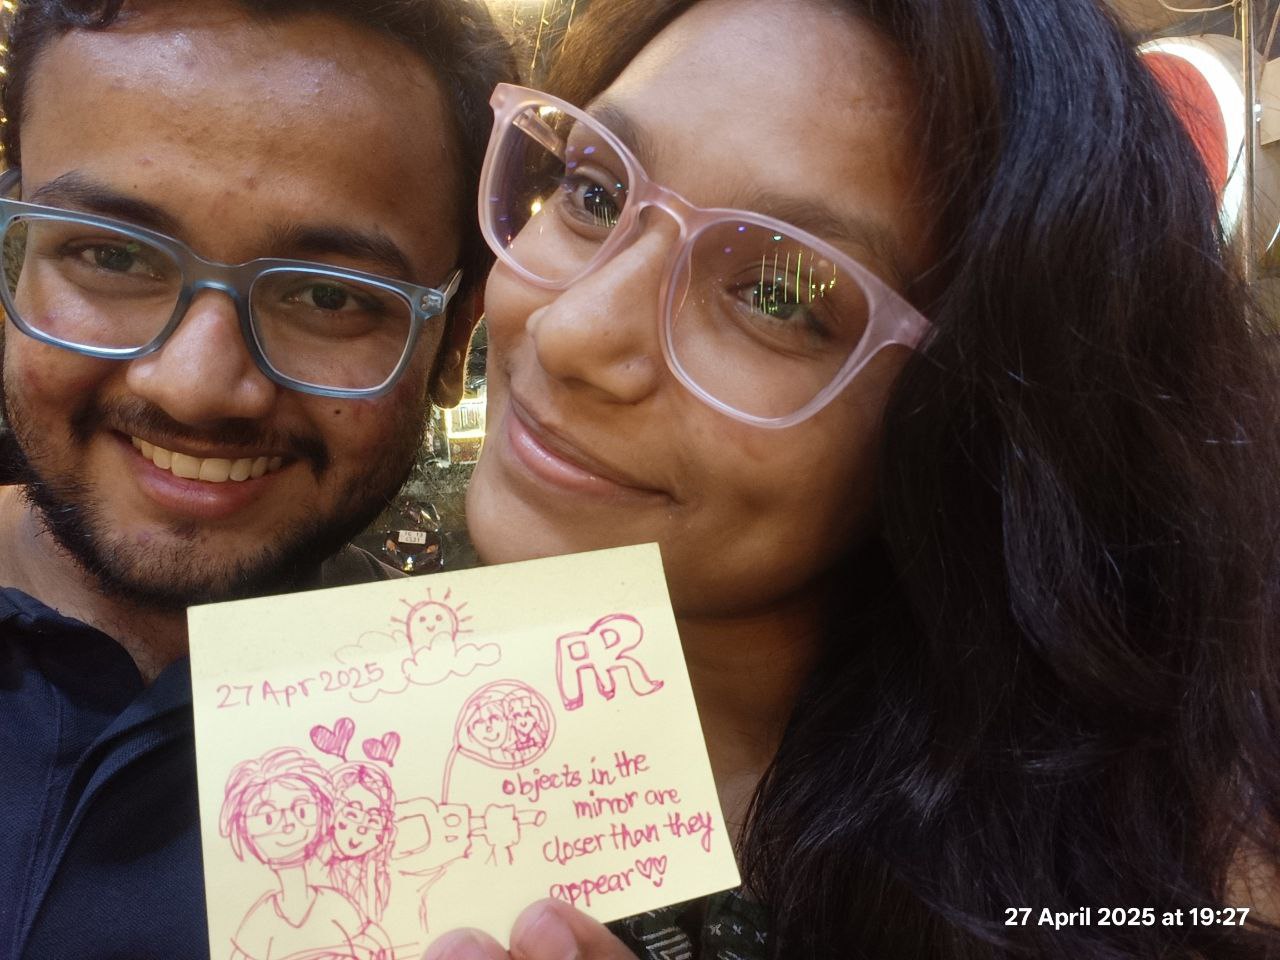 27 Apr 2025
AR
objects in the
mirror are
closer than they
appear
27 April 2025 at 19:27